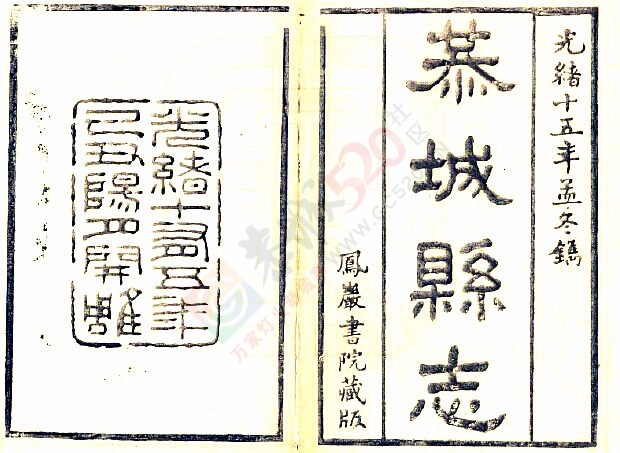 光緒十五年孟冬鐫
恭城縣志
鳳巖書院藏版
光緒十有五年
己丑陽月開雕
520社区